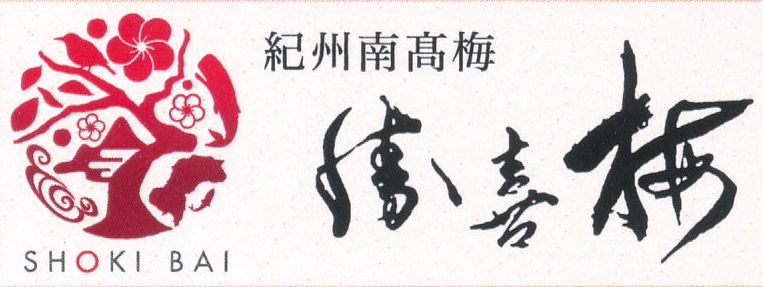 紀州南髙梅
勝喜梅
SHOKI BAI